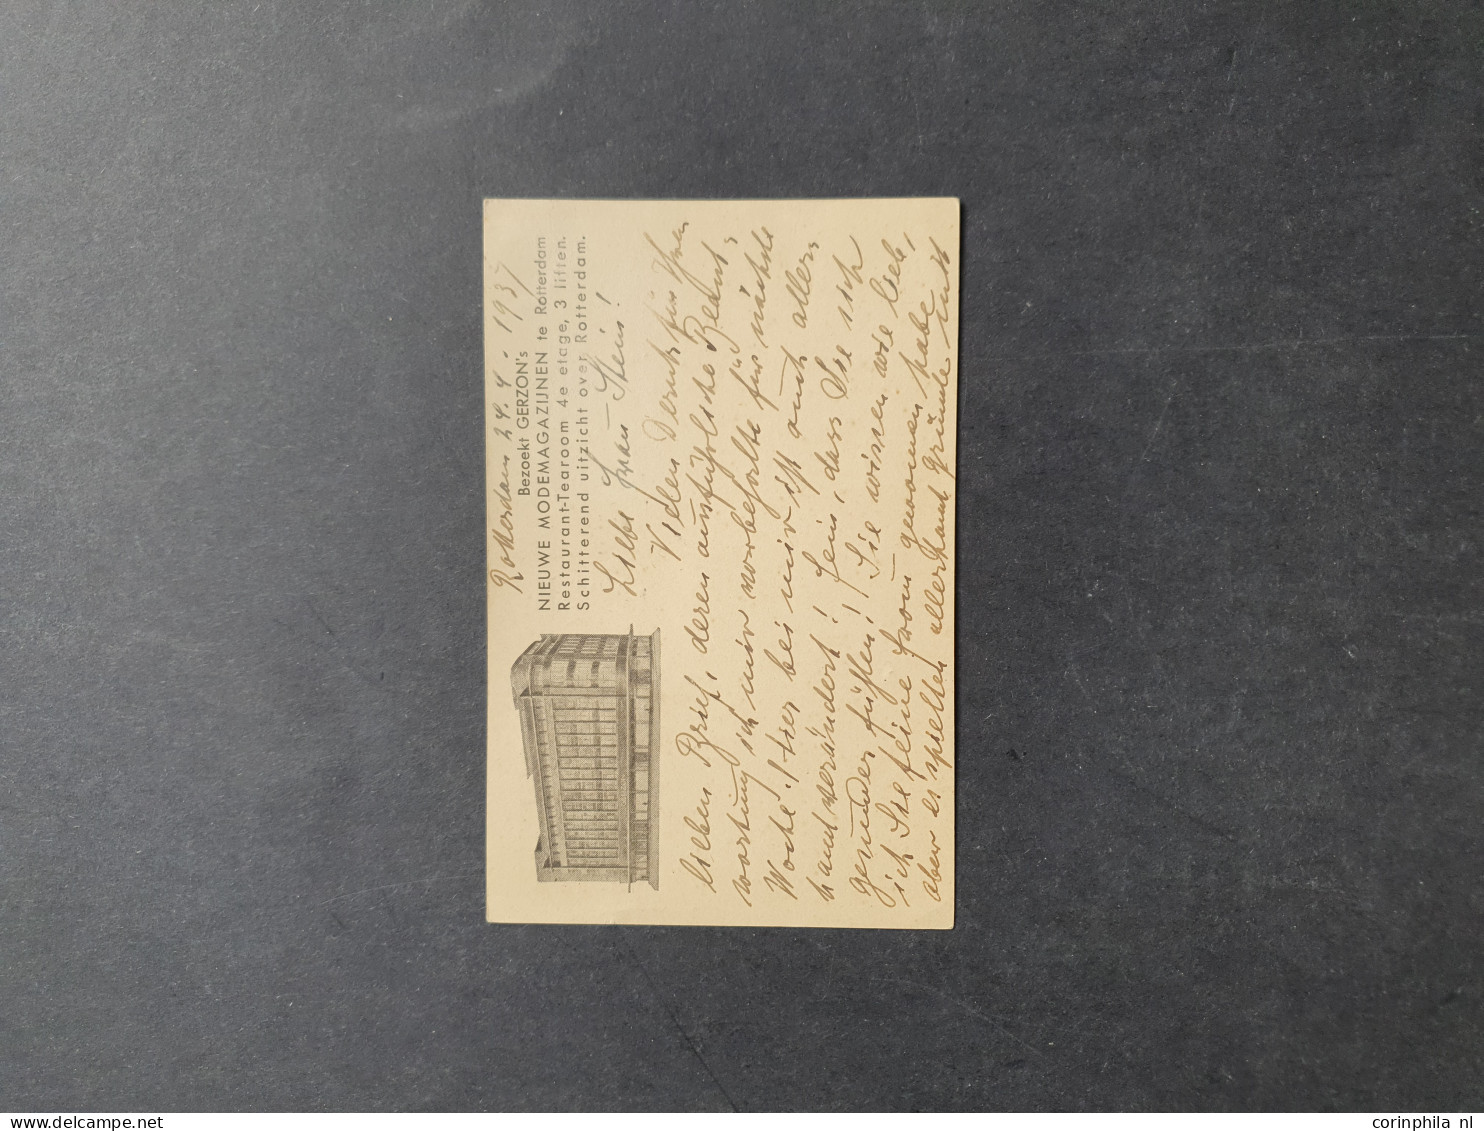 Rotterdam 24.4.1937
Bezoekt GERZON's
NIEUWE MODEMAGAZIJNEN te Rotterdam
Restaurant-Tearoom 4e etage, 3 liften.
Schitterend uitzicht over Rotterdam.
Liebe Frau Stein!
Vielen Dank für Ihren
lieben Brief, deren ausführliche Beant-
wortung ich mir vorbehalte für nächste
Woche. Hier bei mir ist auch aller-
hand verändert! Fein, dass Sie sich
gesünder fühlen! Sie wissen wie lieb,
ich Sie feine Frau gewonnen habe,
aber es spielten allerhand Gründe mit
corinphila nl